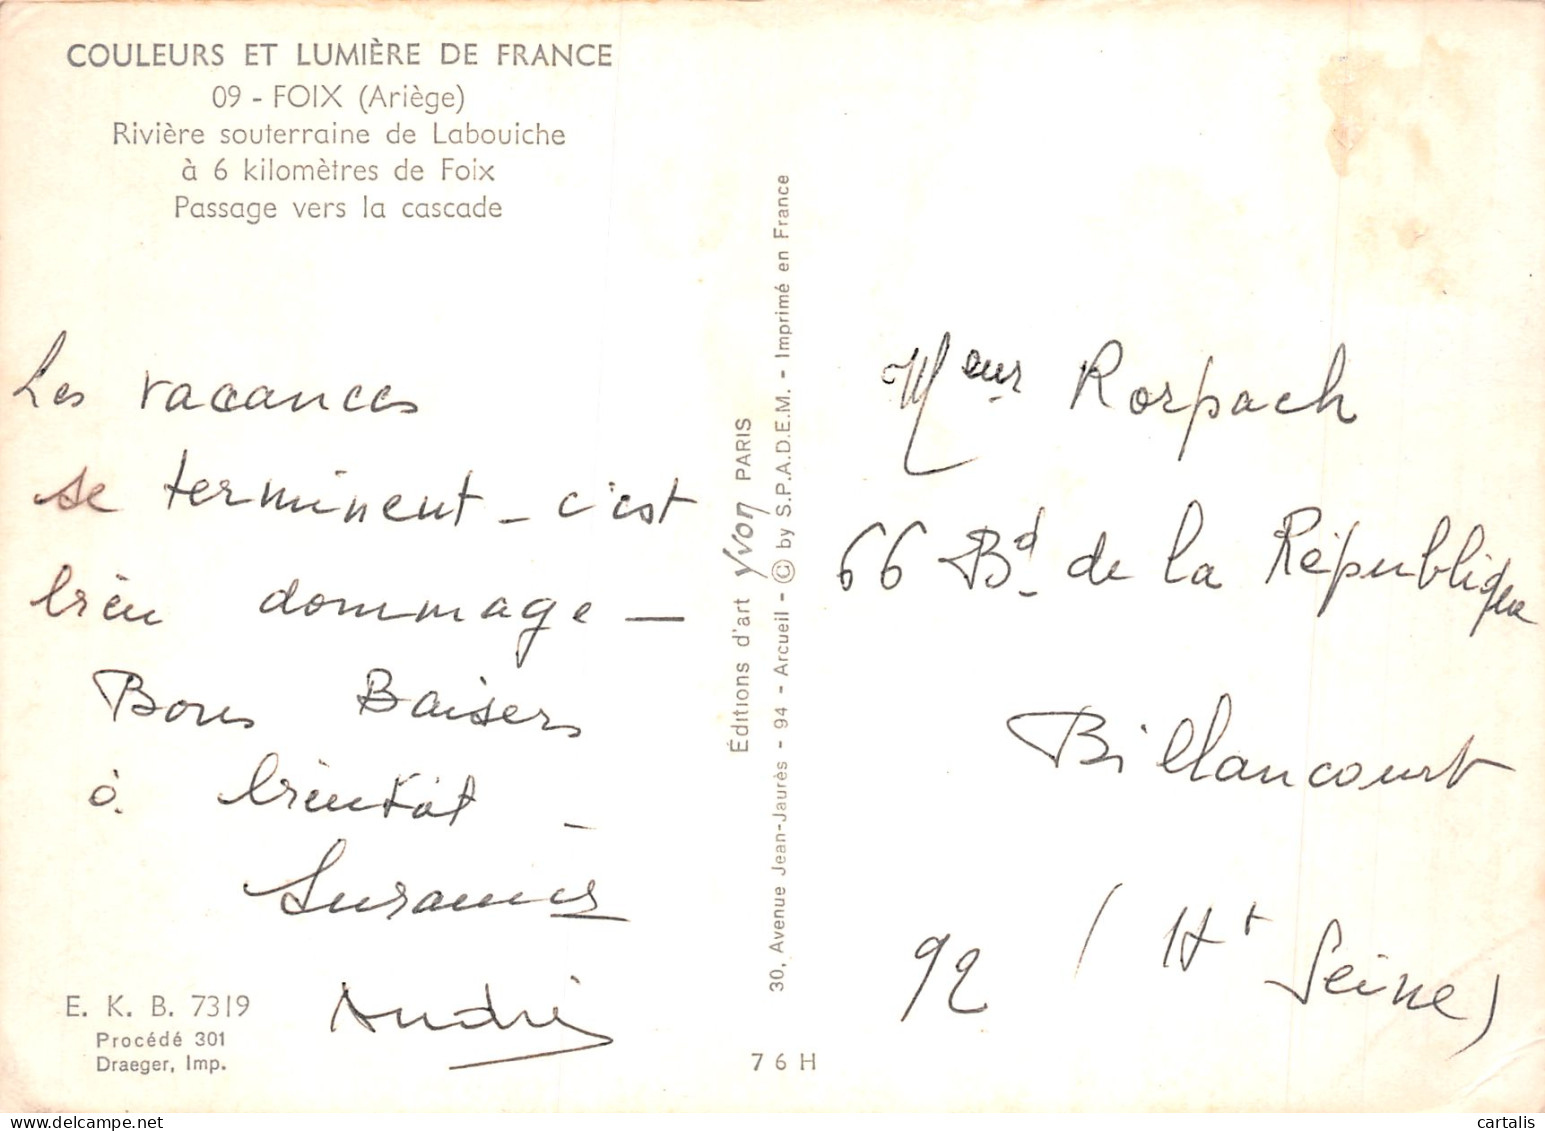 COULEURS ET LUMIÈRE DE FRANCE
09 - FOIX (Ariège)
Rivière souterraine de Labouiche
à 6 kilomètres de Foix
Passage vers la cascade
Les vacances
se terminent - c'est
bien dommage -
Bons Baisers
à bientôt -
André
E. K. B. 7319
Procédé 301
Draeger, Imp.
Éditions d'art Yvon PARIS
30, Avenue Jean-Jaurès - 94 - Arcueil - © by S.P.A.D.E.M. - Imprimé en France
76H
Rorpach
66 Bd de la République
Billancourt
92 (Ht Seine)
cartalis